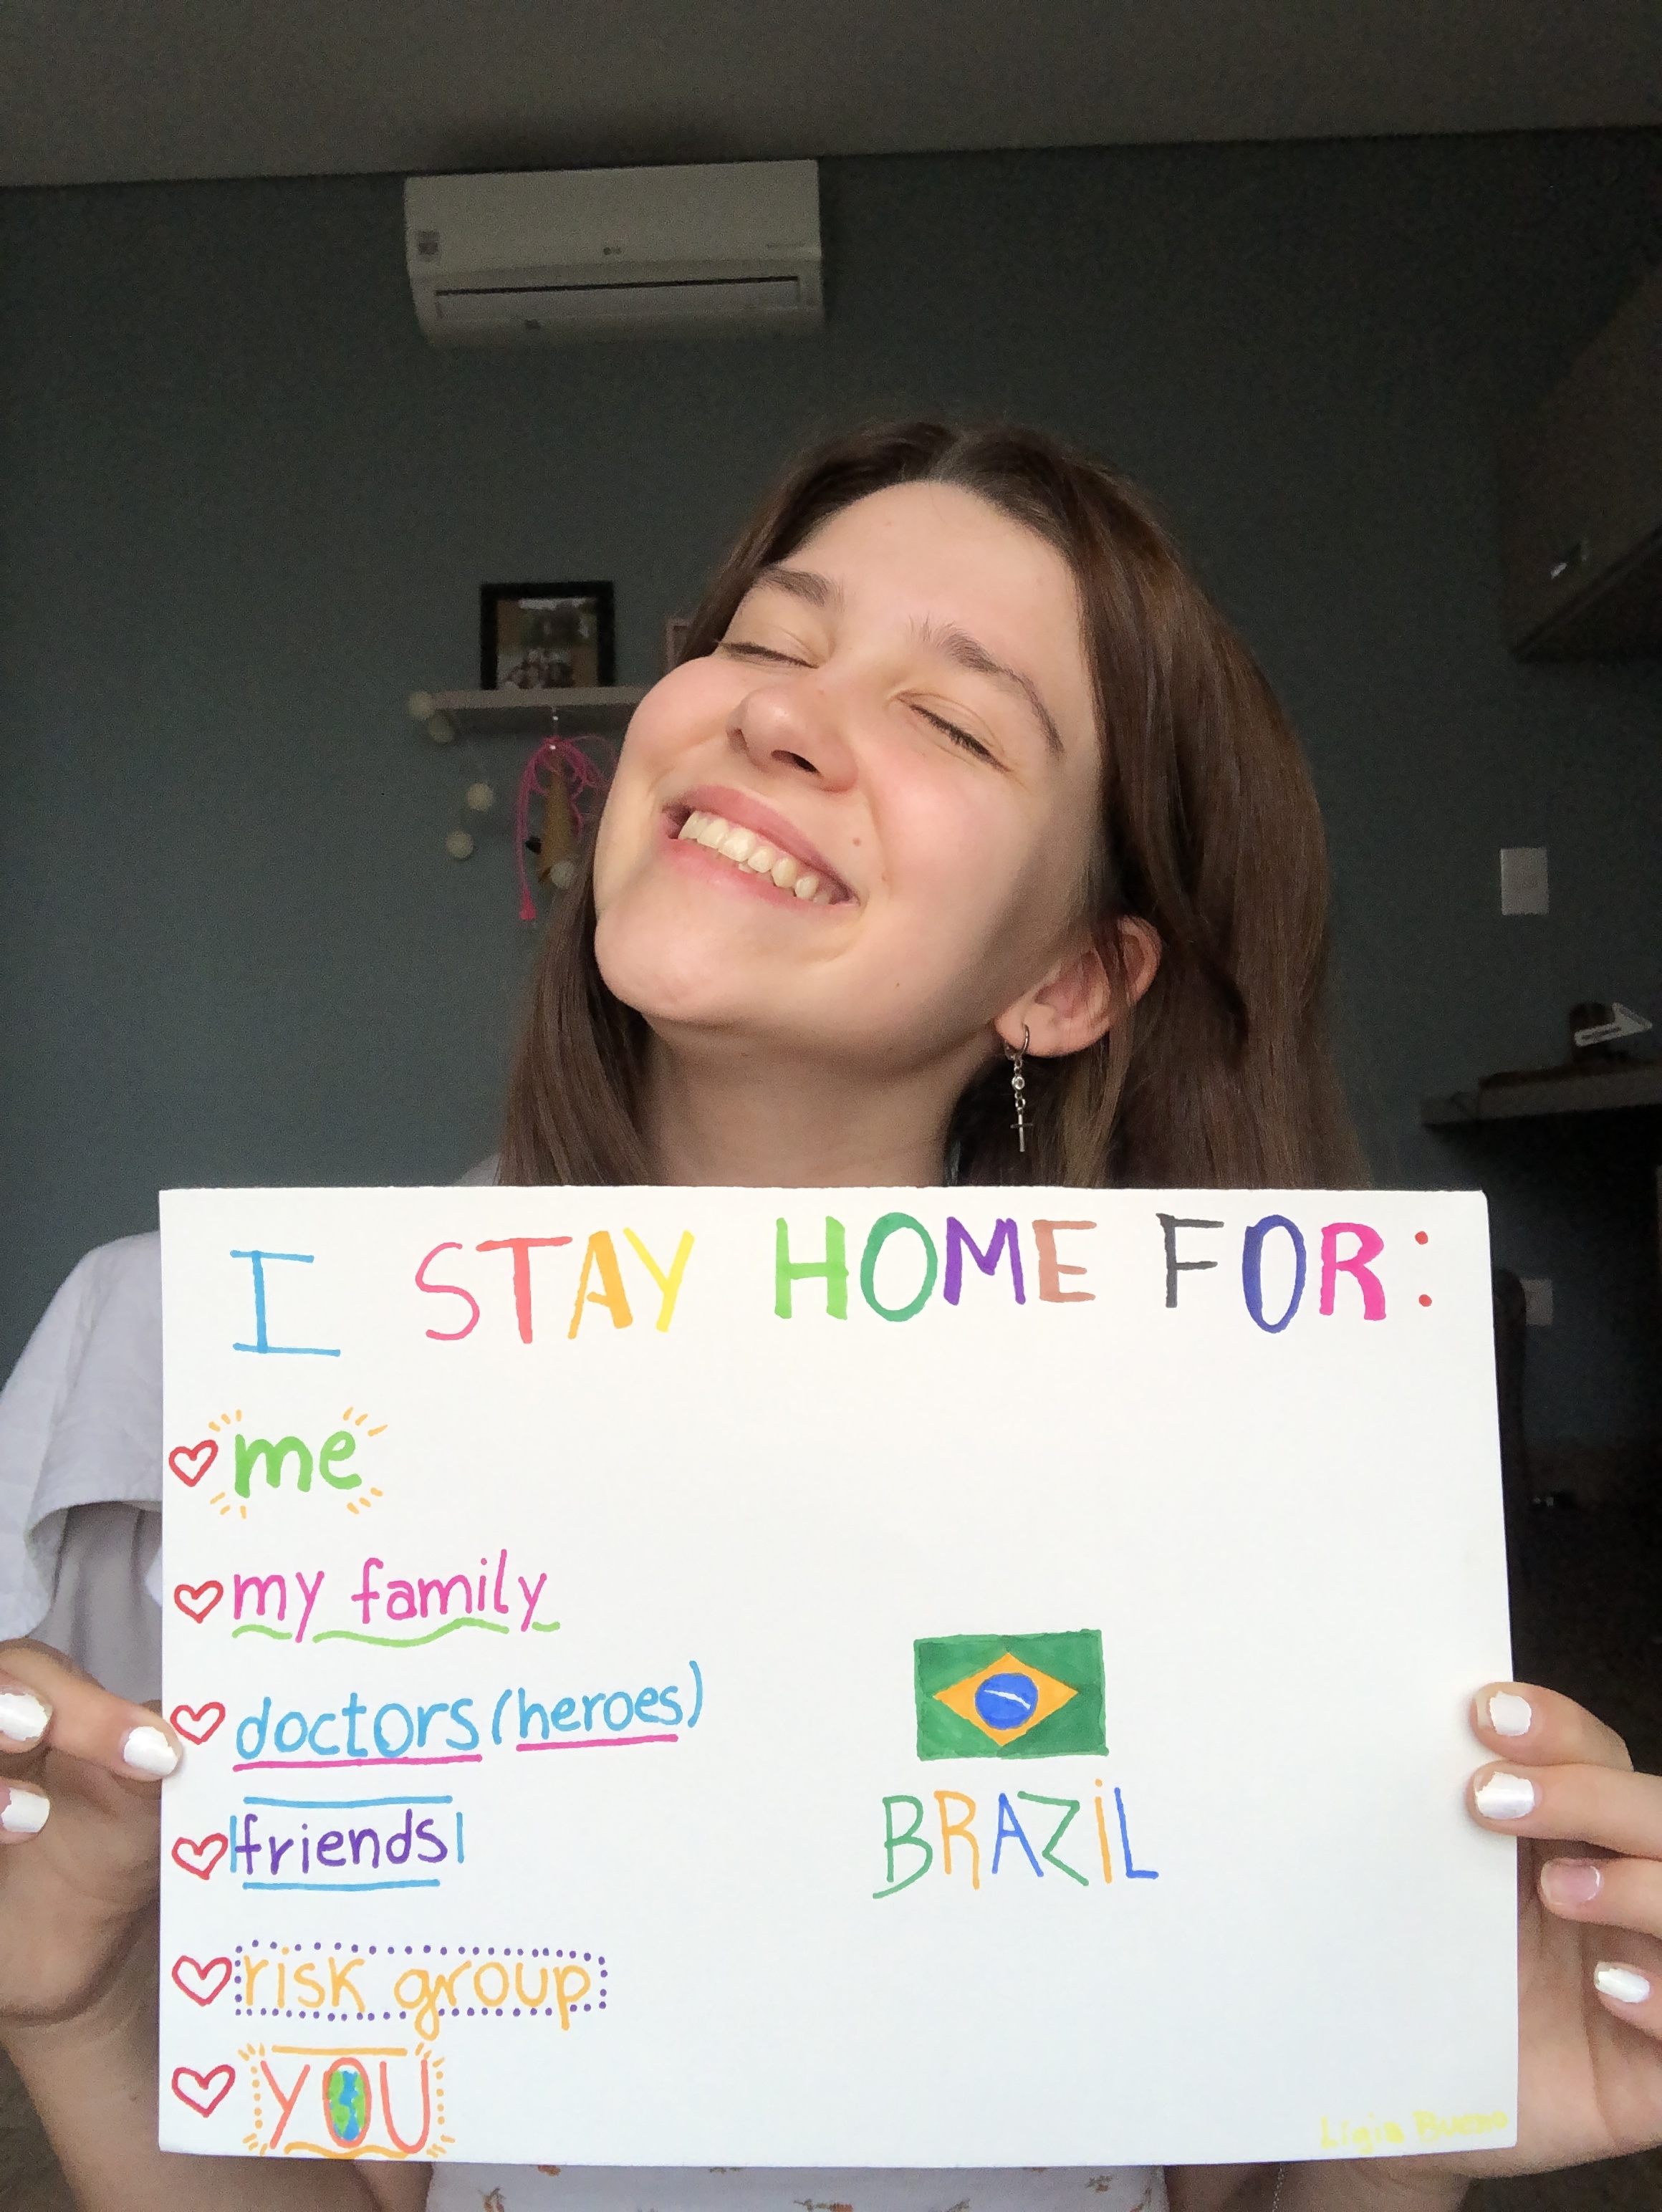 LG
I STAY HOME FOR:
me
my family
doctors (heroes)
friends
risk group
YOU
BRAZiL
Ligia Bueno